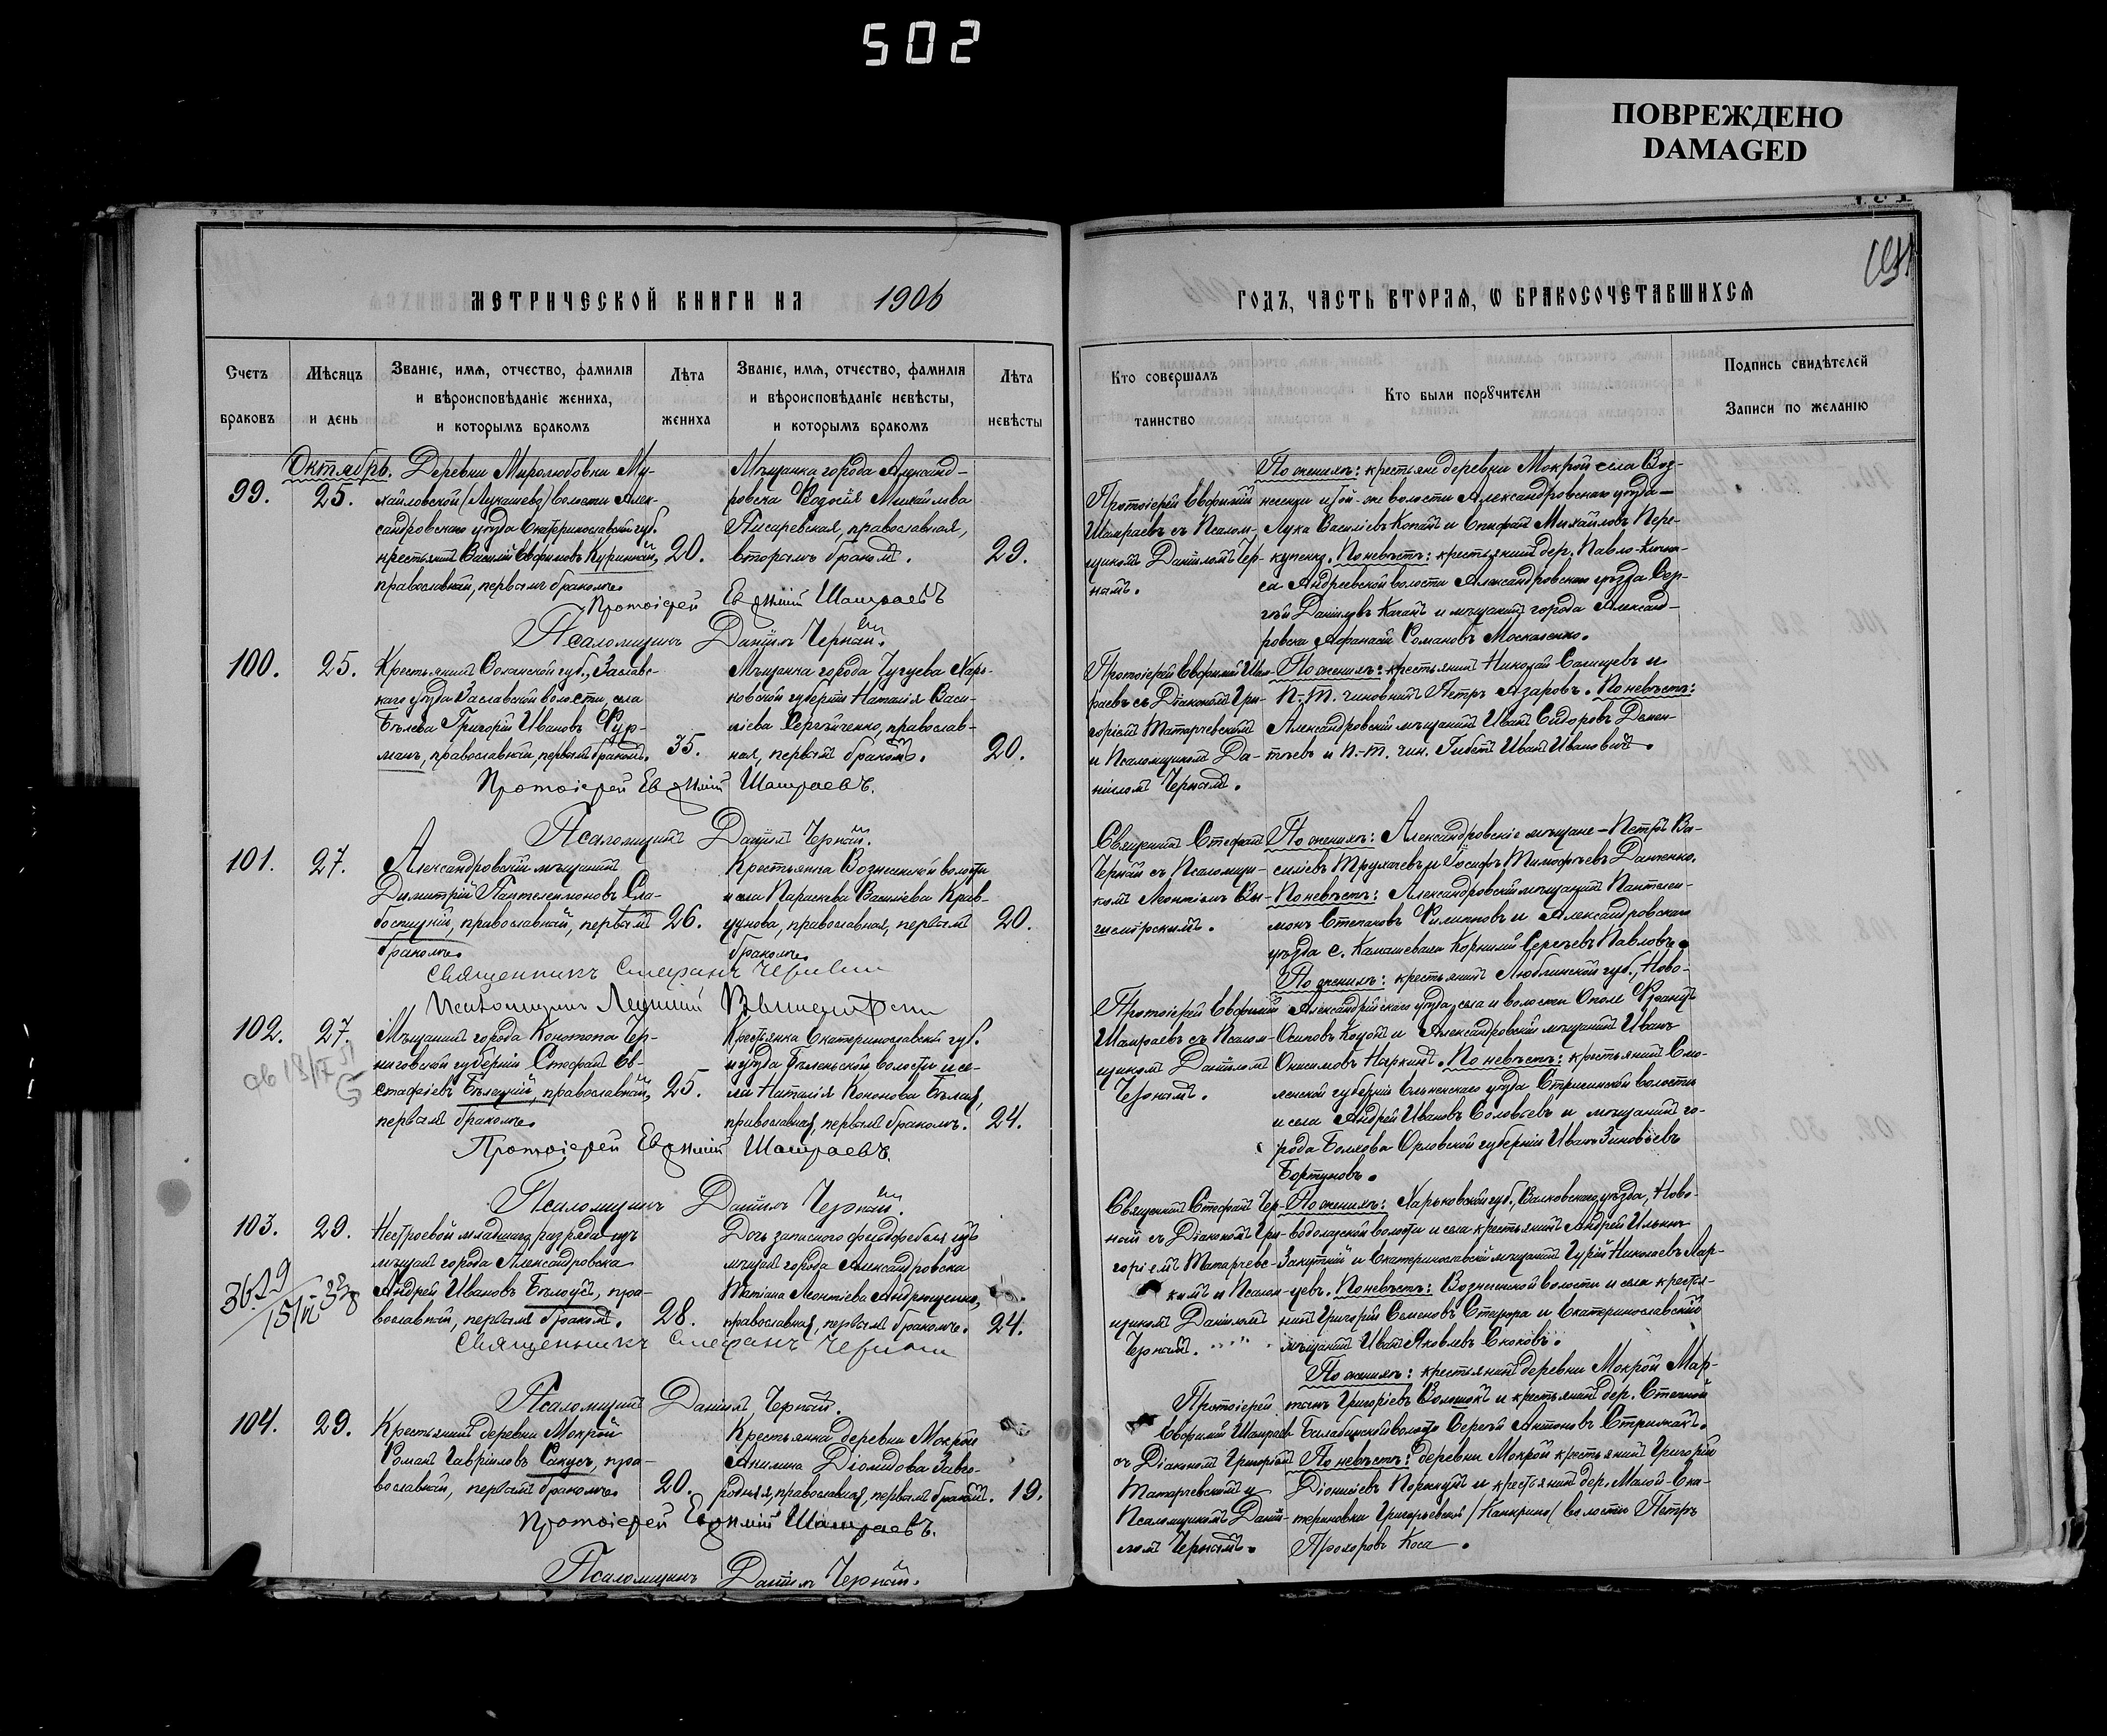 502
ПОВРЕЖДЕНО
DAMAGED
МЕТРИЧЕСКОЙ КНИГИ НА 1906
ГОДЪ, ЧАСТЬ ВТОРАЯ, Ѡ БРАКОСОЧЕТАВШИХСЯ
Счетъ браковъ
Мѣсяцъ и день
Званіе, имя, отчество, фамилія
и вѣроисповѣданіе жениха,
и которымъ бракомъ
Лѣта жениха
Званіе, имя, отчество, фамилія
и вѣроисповѣданіе невѣсты,
и которымъ бракомъ
Лѣта невѣсты
Кто совершалъ таинство
Кто были порꙋчители
Подпись свидѣтелей
Записи по желанію
Октябрь.
99. 25.
Деревни Миролюбовки Ми-
хайловской (Лукашево) волости Алек-
сандровскаго уѣзда Екатеринославской губ.
крестьянинъ Василій Евфимовъ Куринный,
православный, первымъ бракомъ.
20.
Мѣщанка города Александ-
ровска Ѳеодосія Михайлова
Писаревская, православная,
вторымъ бракомъ.
29.
Протоіерей Евфимій
Шамраевъ съ Псалом-
щикомъ Даніиломъ Чер-
нымъ.
По женихѣ: крестьяне деревни Мокрой села Воз-
несенки и той-же волости Александровскаго уѣзда —
Лука Васильевъ Копанъ и Епифанъ Михайловъ Пере-
купенко. По невѣстѣ: крестьянинъ дер. Павло-Кичка-
са Андреевской волости Александровскаго уѣзда Сер-
гѣй Даніиловъ Качанъ и мѣщанинъ города Александ-
ровска Афанасій Романовъ Москаленко.
Протоіерей Евфимій Шамраевъ
Псаломщикъ Даніилъ Черный.
100. 25.
Крестьянинъ Волынской губ., Заслав-
скаго уѣзда Заславской волости, села
Бѣлева Григорій Ивановъ Фур-
манъ, православный, первымъ бракомъ.
35.
Мѣщанка города Чугуева Харь-
ковской губерніи Наталія Васи-
ліева Сергѣйченко, православ-
ная, первымъ бракомъ.
20.
Протоіерей Евфимій Шам-
раевъ съ Діакономъ Гри-
горіемъ Татарчевскимъ
и Псаломщикомъ Да-
ніиломъ Чернымъ.
По женихѣ: крестьянинъ Николай Салищевъ и
П.-Т. чиновникъ Петръ Азаровъ. По невѣстѣ:
Александровскій мѣщанинъ Иванъ Сидоровъ Демен-
тьевъ и П.-Т. чин. Гибетъ Иванъ Ивановичъ.
Протоіерей Евфимій Шамраевъ.
Псаломщикъ Даніилъ Черный.
101. 27.
Александровскій мѣщанинъ
Димитрій Пантелеимоновъ Сла-
боспицкій, православный, первымъ
бракомъ.
26.
Крестьянка Вознесенской волости
и села Параскева Васильева Крав-
цунова, православная, первымъ
бракомъ.
20.
Священникъ Стефанъ
Черный съ Псаломщи-
комъ Леонтіемъ Вы-
По женихѣ: Александровскіе мѣщане — Петръ Ва-
силіевъ Трухачевъ и Іосифъ Тимофѣевъ Данченко.
По невѣстѣ: Александровскій мѣщанинъ Пантелеи-
монъ Степановъ Филипповъ и Александровскаго
уѣзда с. Камышеваха Корнилій Сергѣевъ Павловъ.
Священникъ Стефанъ Черный
Псаломщикъ Леонтій
102. 27.
Мѣщанинъ города Конотопа Чер-
ниговской губерніи Стефанъ Ев-
стафіевъ Бѣлецкій, православный,
первымъ бракомъ.
25.
Крестьянка Екатеринославской губ.
и уѣзда Бѣленьской волости и се-
ла Наталія Кононова Бѣлая,
православная, первымъ бракомъ.
24.
Протоіерей Евфимій
Шамраевъ съ Псалом-
щикомъ Даніиломъ
Чернымъ.
По женихѣ: крестьянинъ Люблинской губ., Ново-
Александрійскаго уѣзда, села и волости Ополе Францъ
Осиповъ Коцонъ и Александровскій мѣщанинъ Иванъ
Онисимовъ Наркинъ. По невѣстѣ: крестьянинъ Смо-
ленской губерніи Ельненскаго уѣзда Стригинской волости
и села Андрей Ивановъ Соловьевъ и мѣщанинъ го-
рода Болхова Орловской губерніи Иванъ Зиновьевъ
Бортуновъ.
Протоіерей Евфимій Шамраевъ.
Псаломщикъ Даніилъ Черный.
103. 29.
Нестроевой младшаго разряда изъ
мѣщанъ города Александровска
Андрей Ивановъ Бѣлоусъ, пра-
вославный, первымъ бракомъ.
28.
Дочь запаснаго фельдфебеля изъ
мѣщанъ города Александровска
Татіана Леонтіева Андрющенко,
православная, первымъ бракомъ.
24.
Священникъ Стефанъ Чер-
ный съ Діакономъ Гри-
горіемъ Татарчевс-
кимъ и Псалом-
щикомъ Даніиломъ
Чернымъ.
По женихѣ: Харьковской губ., Валковскаго уѣзда, Ново-
водолажской волости и села крестьянинъ Андрей Ильинъ
Закутний и Екатеринославскій мѣщанинъ Гурій Николаевъ Лар-
цевъ. По невѣстѣ: Вознесенской волости и села крестья-
нинъ Григорій Семеновъ Стецюра и Екатеринославскій
мѣщанинъ Иванъ Яковлевъ Сноковъ.
Священникъ Стефанъ Черный
Псаломщикъ Даніилъ Черный.
104. 29.
Крестьянинъ деревни Мокрой
Романъ Гавріиловъ Сакусъ, пра-
вославный, первымъ бракомъ.
20.
Крестьянка деревни Мокрой
Акилина Діомидова Заво-
родняя, православная, первымъ бракомъ.
19.
Протоіерей
Евфимій Шамраевъ
съ Діакономъ Григоріемъ
Татарчевскимъ и
Псаломщикомъ Даніи-
ломъ Чернымъ.
По женихѣ: крестьянинъ деревни Мокрой Мар-
тинъ Григорьевъ Волошокъ и крестьянинъ дер. Степной
Балабинской волости Сергѣй Антоновъ Стрижакъ.
По невѣстѣ: деревни Мокрой крестьянинъ Григорій
Діонисіевъ Поркуцъ и крестьянинъ дер. Малой-Ека-
териновки Григорьевской (Канкрино) волости Петръ
Прохоровъ Коса.
Протоіерей Евфимій Шамраевъ.
Псаломщикъ Даніилъ Черный.